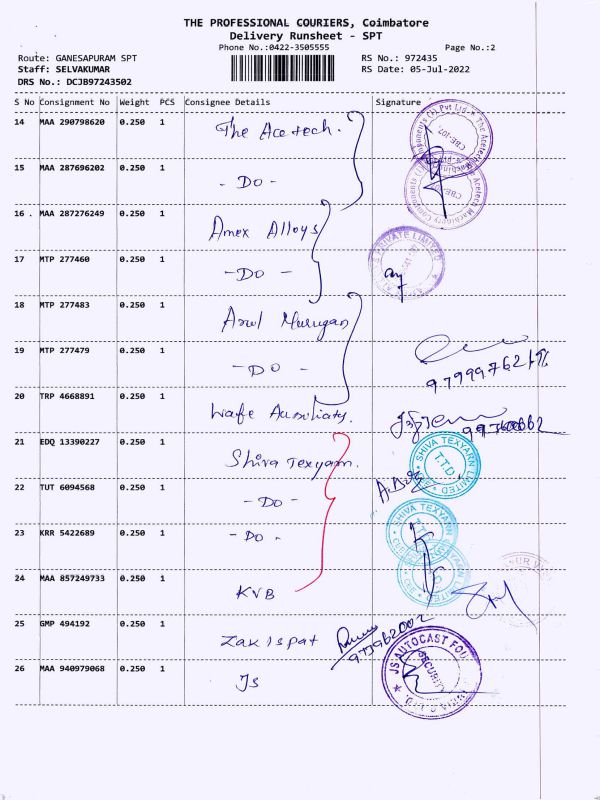 THE PROFESSIONAL COURIERS, Coimbatore
Delivery Runsheet - SPT
Phone No.:0422-3505555
Page No.:2
Route: GANESAPURAM SPT
RS No.: 972435
Staff: SELVAKUMAR
RS Date: 05-Jul-2022
DRS No.: DCJB97243502
S No Consignment No Weight PCS Consignee Details Signature
14 MAA 290798620 0.250 1 The Acetech.
15 MAA 287696202 0.250 1 - Do -
16 . MAA 287276249 0.250 1 Amex Alloys
17 MTP 277460 0.250 1 - Do -
18 MTP 277483 0.250 1 Arul Murugan
19 MTP 277479 0.250 1 - Do -
20 TRP 4668891 0.250 1
21 EDQ 13390227 0.250 1 Shiva Texyarn.
SHIVA TEXYARN LIMITED
T.T.D.
22 TUT 6094568 0.250 1 - Do -
SHIVA TEXYARN
23 KRR 5422689 0.250 1 - Do -
24 MAA 857249733 0.250 1 KVB
25 GMP 494192 0.250 1 Zak Ispat
26 MAA 940979068 0.250 1 Js
JS AUTOCAST
SECURITY